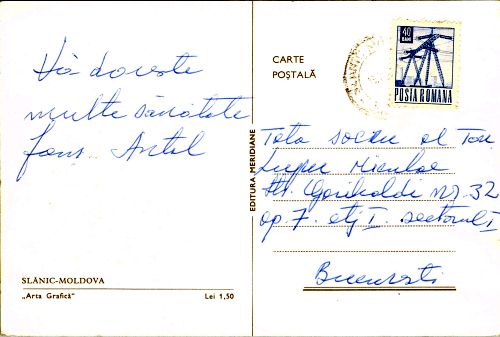 Vă dorește
multă sănătate
fam. Antal
SLĂNIC-MOLDOVA
„Arta Grafică” Lei 1,50
EDITURA MERIDIANE
CARTE
POȘTALĂ
40
BANI
POSTA ROMANA
Lupu Niculae
Str. Garibaldi nr. 32
ap. 7. etj I. sectorul I
București